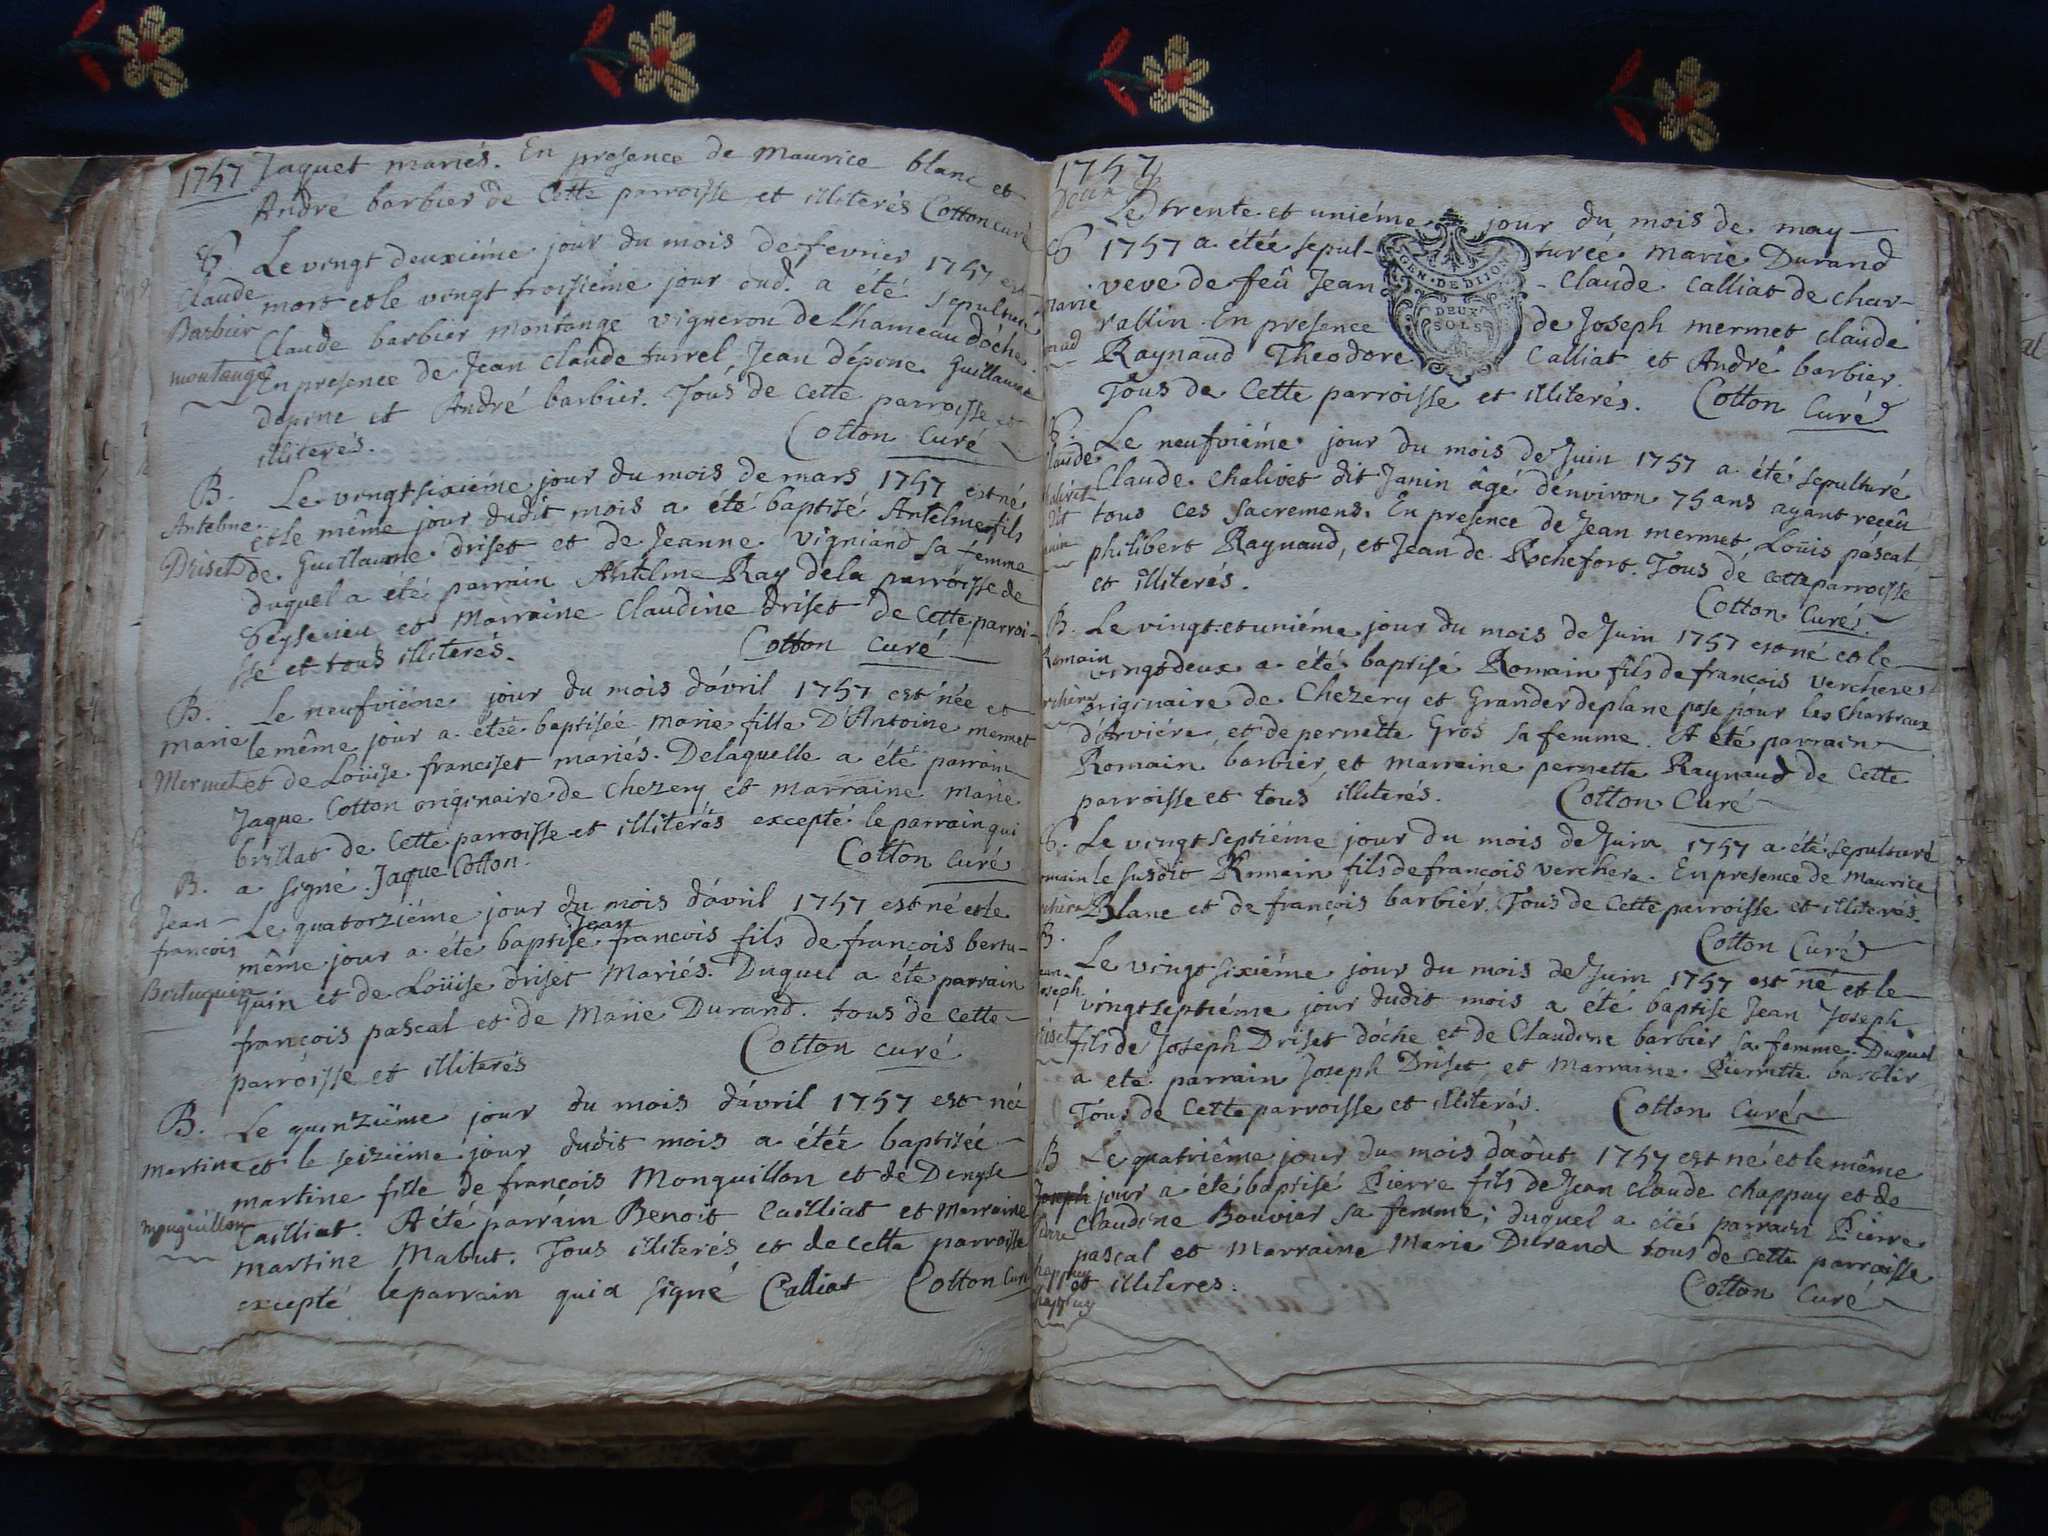 1757 Jaquet mariés. En presence de maurice blanc et
André barbier de cette parroisse et illiterés Cotton curé
S Le vingt deuxiéme jour du mois de fevrier 1757 est
Claude mort et le vingt troisiéme jour dud. a été sepulturé
Barbier Claude barbier montange vigneron de l'hameau d'óche.
montange En presence de Jean Claude turrel, Jean dépine Guillaume
depine et André barbier. Tous de cette parroisse et
illiterés. Cotton Curé
B. Le vingt sixiéme jour du mois de mars 1757 est né
Antelme et le même jour dudit mois a été baptisé Antelme fils
Driset de Guillaume driset et de Jeanne vigniand sa femme
duquel a été parrain Antelme Ray de la parroisse de
Seyserieu et Marraine Claudine driset de cette parroi-
sse et tous illiterés. Cotton Curé
B. Le neufviéme jour du mois d'avril 1757 est née et
marie le même jour a étée baptisée marie fille D'Antoine mermet
Mermet et de Loüise franciset mariés. De laquelle a été parrain
Jaque Cotton originaire de Chezery et marraine marie
brillat de cette parroisse et illiterés excepté le parrain qui
B. a signé. Jaque Cotton. Cotton Curé
Jean Le quatorziéme jour du mois d'avril 1757 est né et le
Jean
françois même jour a été baptisé francois fils de françois bertu-
Bertuguin guin et de Loüise driset Mariés. Duquel a été parrain
françois pascal et de Marie Durand. tous de cette
parroisse et illiterés Cotton curé
B. Le quinziéme jour du mois d'avril 1757 est née
martine et le seiziéme jour dudit mois a étée baptisée
martine fille de françois Monguillon et de Denyse
monguillon Cailliat. A été parrain Benoit Cailliat et Marraine
martine Mabut. Tous illiterés et de cette parroisse
excepté le parrain qui a signé Calliat Cotton Curé
1757
Le trente et uniéme jour du mois de may
S 1757 a étée sepul- turée marie Durand
GEN. DE DIJON
marie veve de feû Jean - Claude Calliat de char-
DEUX SOLS
rallin. En presence de Joseph mermet claude
Raynaud Theodore Calliat et André barbier.
Tous de cette parroisse et illiterés. Cotton Curé
S. Le neufviéme jour du mois de Juin 1757 a été sepulturé
claude Claude Chalivet dit Janin âgé d'environ 75 ans ayant reçeû
dit tous ces sacremens. En presence de Jean mermet, Louis páscal,
philibert Raynaud, et Jean de Rochefort. Tous de cette parroisse
et illiterés. Cotton Curé.
B. Le vingt et uniéme jour du mois de Juin 1757 est né et le
Romain vingt deux a été baptisé Romain fils de françois vercheres
originaire de Chezery et Granger de plane pose pour les Chartreux
d'Arviére, et de pernette Gros sa femme. A été parrain
Romain barbier, et marraine pernette Raynaud de cette
parroisse et tous illiterés. Cotton Curé
S. Le vingt septiéme jour du mois de Juin 1757 a été sepulturé
le susdit Romain fils de françois verchere. En presence de maurice
Blanc et de françois barbier. Tous de cette parroisse et illiterés.
B. Cotton Curé
Le vingt sixiéme jour du mois de Juin 1757 est né et le
vingt septiéme jour dudit mois a été baptisé Jean Joseph
fils de Joseph Driset d'óche et de Claudine barbier sa femme. Duquel
a été parrain Joseph Driset, et Marraine Pierrette barbier
Tous de cette parroisse et illiterés. Cotton Curé
B Le quatriéme jour du mois d'aôut 1757 est né et le même
Joseph jour a été baptisé Pierre fils de Jean claude Chappuy et de
pierre Claudine Bouvier sa femme; duquel a été parrain Pierre
pascal et Marraine Marie Durand tous de cette parroisse
chappuy et illiteres. Cotton Curé